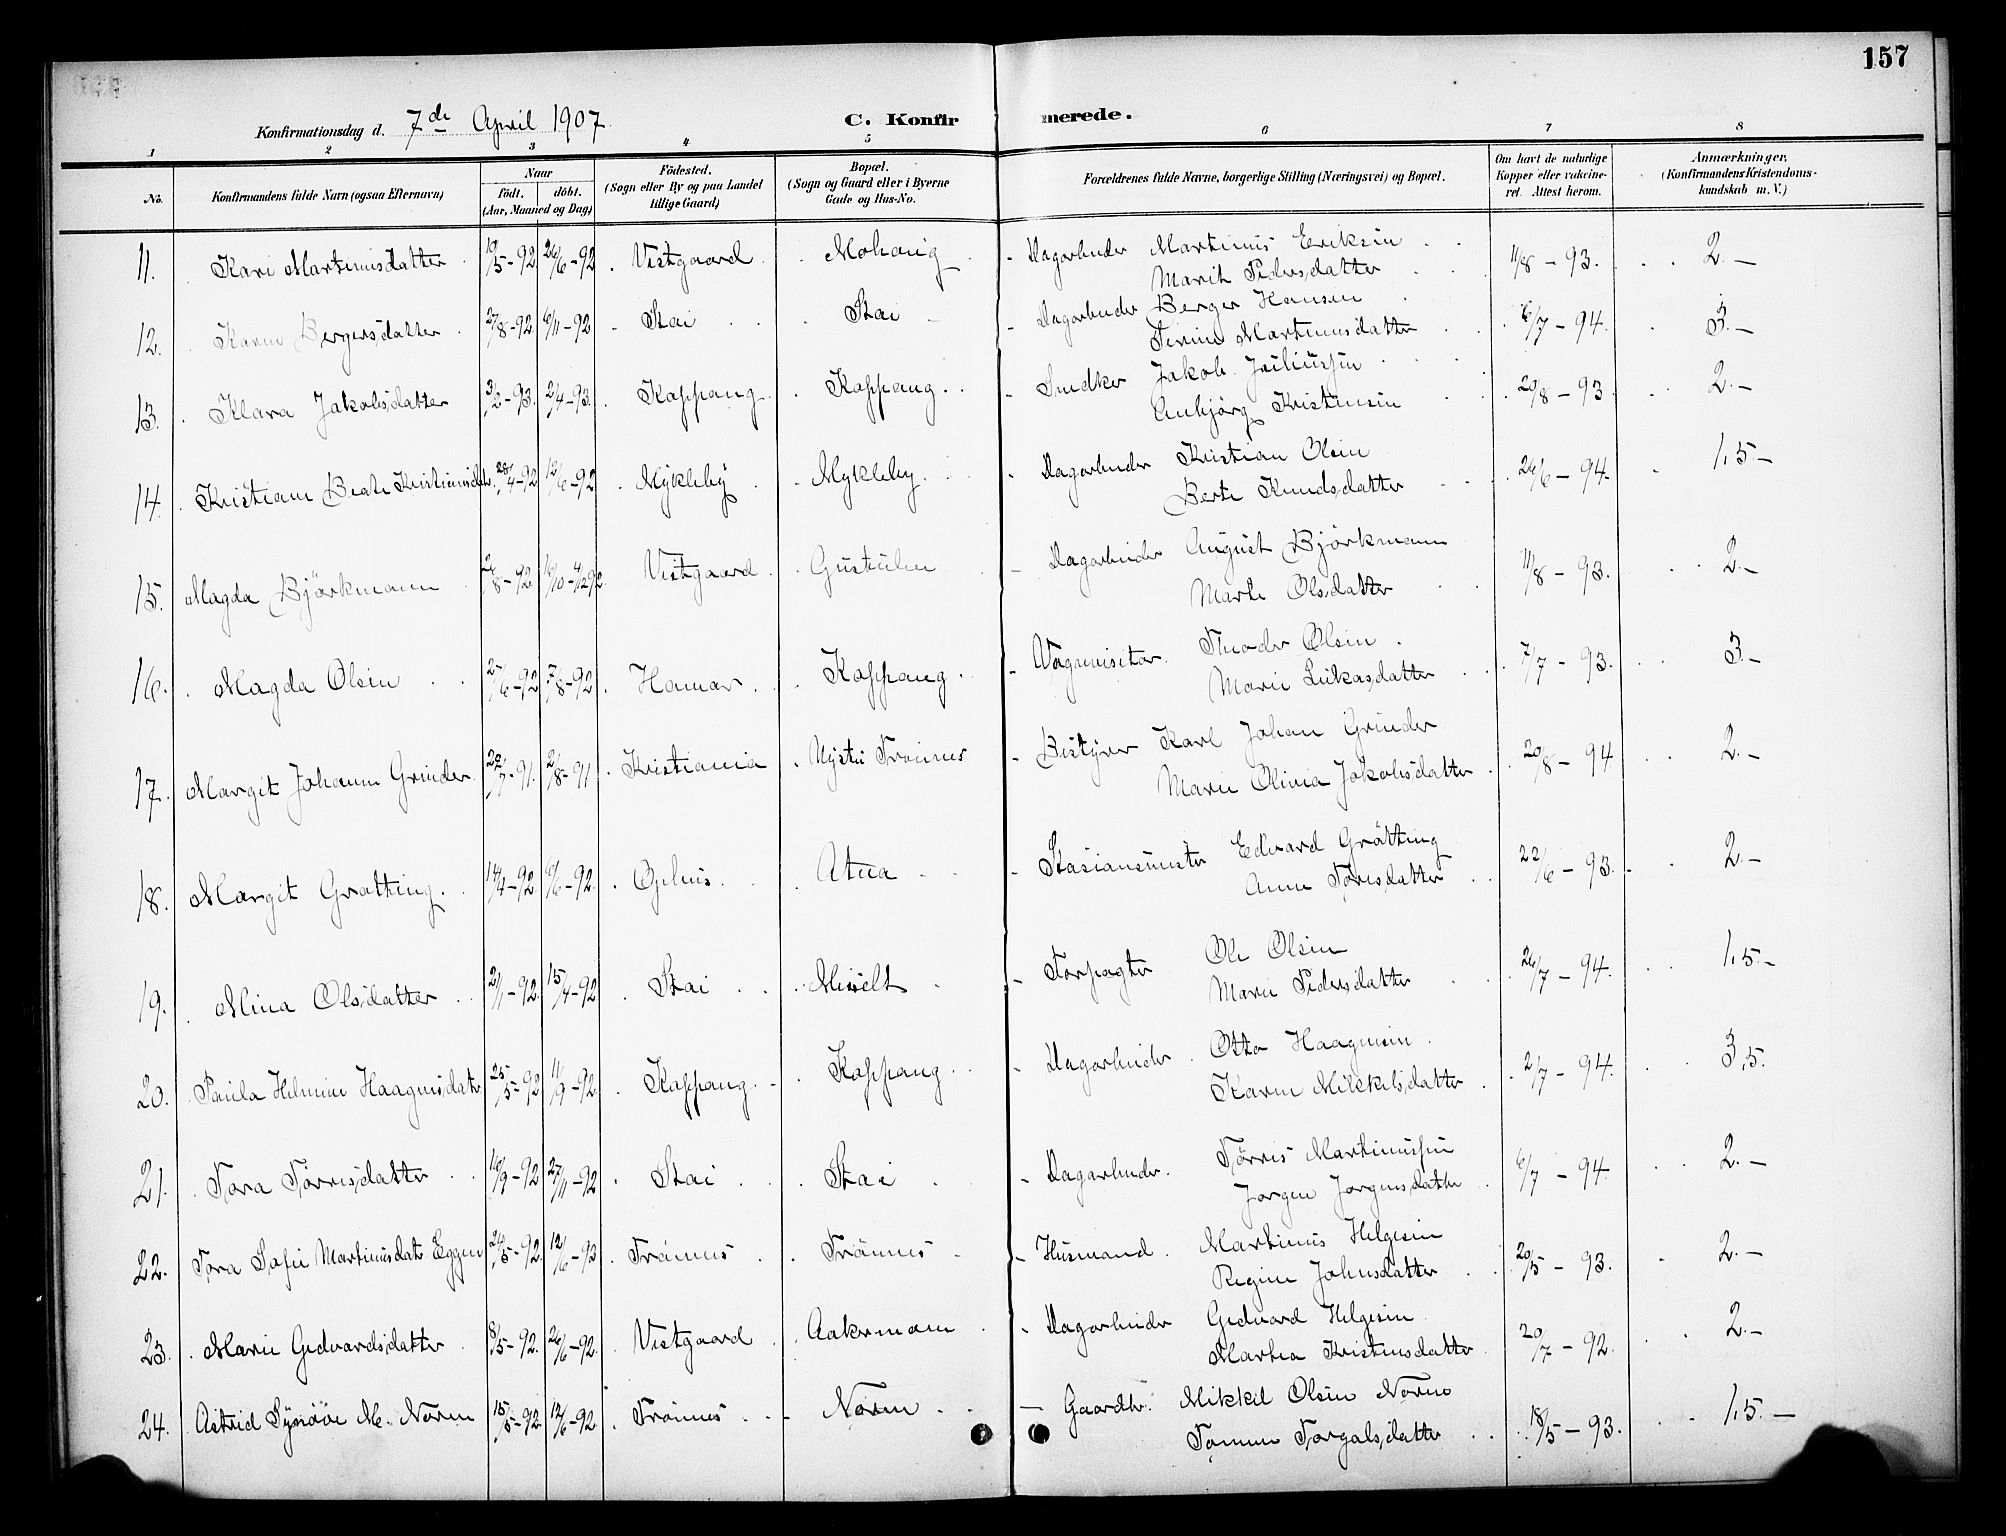 157
Konfirmationsdag d. 7de April 1907.
C. Konfirmerede.
1 2 3 4 5 6 7 8
No. Konfirmandens fulde Navn (ogsaa Efternavn) Naar født. døbt. (Aar, Maaned og Dag) Fødested. (Sogn eller By og paa Landet tillige Gaard) Bopæl. (Sogn og Gaard eller i Byerne Gade og Hus-No. Forældrenes fulde Navne, borgerlige Stilling (Næringsvei) og Bopæl. Om havt de naturlige Kopper eller vaccineret. Attest herom. Anmærkninger, (Konfirmandens Kristendomskundskab m. V.)
11. Kari Martinusdatter 19/5-92 26/6-92 Vestgaard Mohaug Dagarbeider Martinus Eriksen 11/8 - 93. 2.-
Marit Pedersdatter
12. Karen Bergersdatter 27/8-92 6/11-92 Stai Stai Dagarbeider Berger Hansen 6/7 - 94. 3.-
Terine Martinusdatter
13. Klara Jakobsdatter 3/2-93. 2/4-93. Koppang Koppang Snedker Jakob Juliussen 29/8 - 93 2.-
Anbjørg Kristensen
14. Kristiane Beate Kristiansdatr. 28/4-92 12/6-92 Mykleby Mykleby Dagarbeider Kristian Olsen 26/6 - 94. 1,5-
Berte Knudsdatter
15. Magda Björkmann 26/8-92. 16/10-4/12 92. Vestgaard Gustulen Dagarbeider August Björkmann 11/8 - 93. 2.-
Marte Olsdatter
16. Magda Olsen 25/6-92 7/8-92 Hamar Koppang Vognvisitør Theodor Olsen 7/7 - 93. 3-
Marie Lukasdatter
17. Margit Johanne Grinder 22/7-91. 2/8-91 Kristiania Nystu Trønnes Bestyrer Karl Johan Grinder 20/8 - 94 2.-
Marie Olivia Jakobsdatter
18. Margit Grøtting 14/4-92. 6/6-92. Ophus Atna Stasionsmester Edvard Grøtting 22/6 - 93. 2-
Anne Tørresdatter
19. Mina Olsdatter 21/1-92. 15/4-92 Stai Messelt Forpagter Ole Olsen 26/7 - 94. 1,5-
Marie Pedersdatter
20. Paula Helmine Haagensdatr. 25/5-92 11/9-92. Koppang Koppang Dagarbeider Otto Haagensen 2/7 - 94. 3,5.
Karen Mikkelsdatter
21. Tora Tørresdatter 16/9-92 27/11-92 Stai Stai Dagarbeider Tørres Martinussen 6/7 - 94. 2.-
Jørgine Jørgensdatter
22. Tora Sofie Martinusdatr Eggen 24/5-92. 12/6-93 Trønnes Trønnes Husmand Martinus Helgesen 20/5 - 93. 2.-
Regine Johnsdatter
23. Marie Gedvardsdatter 8/5-92. 26/6-92. Vestgaard Aakrmoen Dagarbeider Gedvard Helgesen 20/7 - 92. 2.-
Martea Kristensdatter
24. Astrid Synöve M. Noren 15/5-92. 12/6-92. Trønnes Noren Gaardbr. Mikkel Olsen Noren 18/5 - 93. 1,5.-
Tomine Torgalsdatter